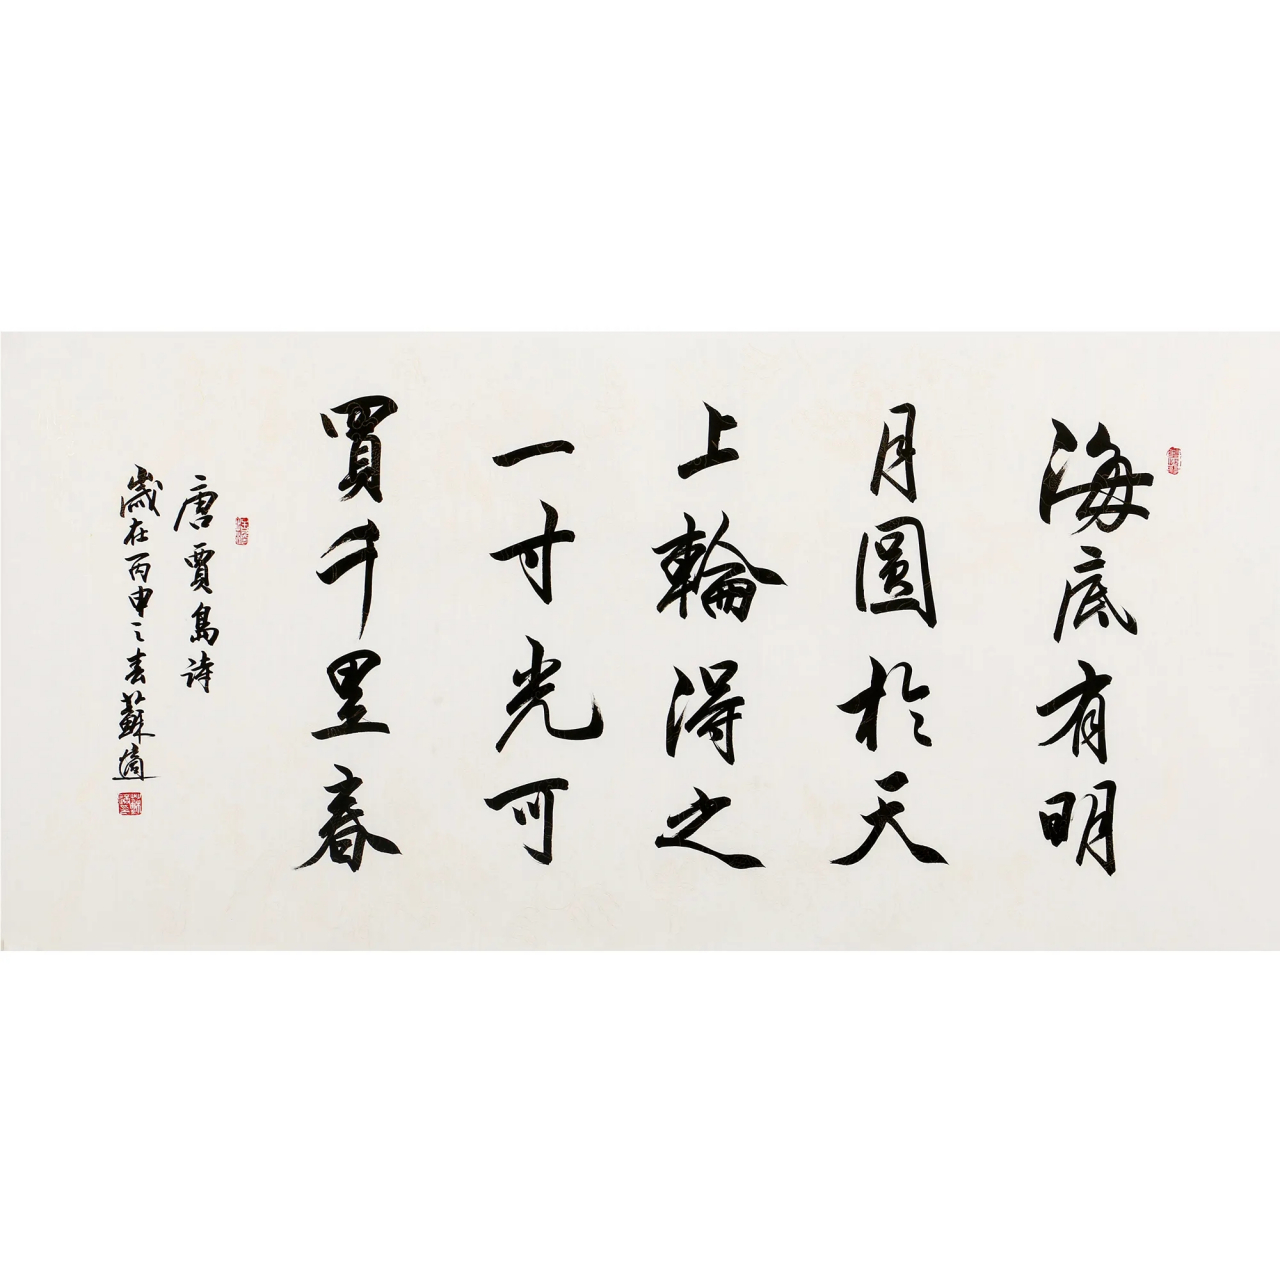 海底有明
月圓於天
上輪得之
一寸光可
買千里春
唐賈島詩
歲在丙申之春蘇適